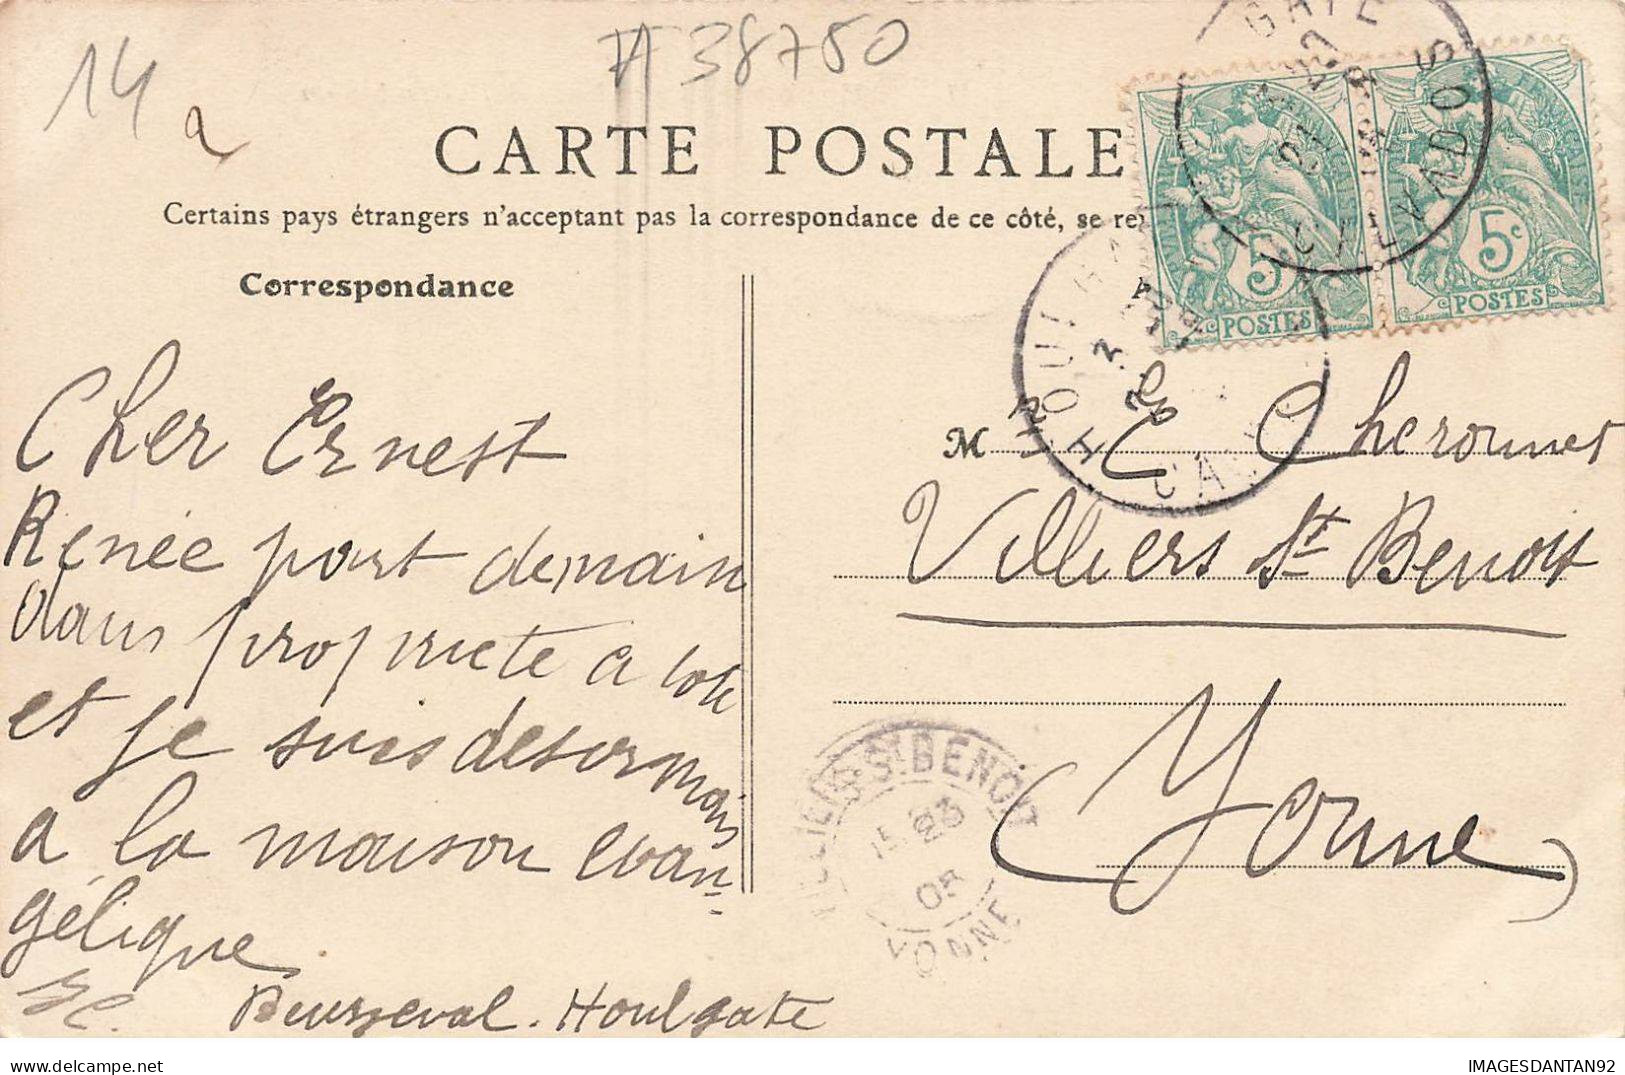 14
#38750
CARTE POSTALE
Certains pays étrangers n'acceptant pas la correspondance de ce côté, se re
Correspondance
Cher Ernest
Renée part demain
dans propriete a cote
et je suis desormais
a la maison evan-
gélique
Beuzeval. Houlgate
M E Cheronnet
Villiers St Benoit
Yonne
5c
POSTES
5c
POSTES
HOULGATE
CALVADOS
VILLIERS-St BENOIT
YONNE
IMAGESDANTAN92